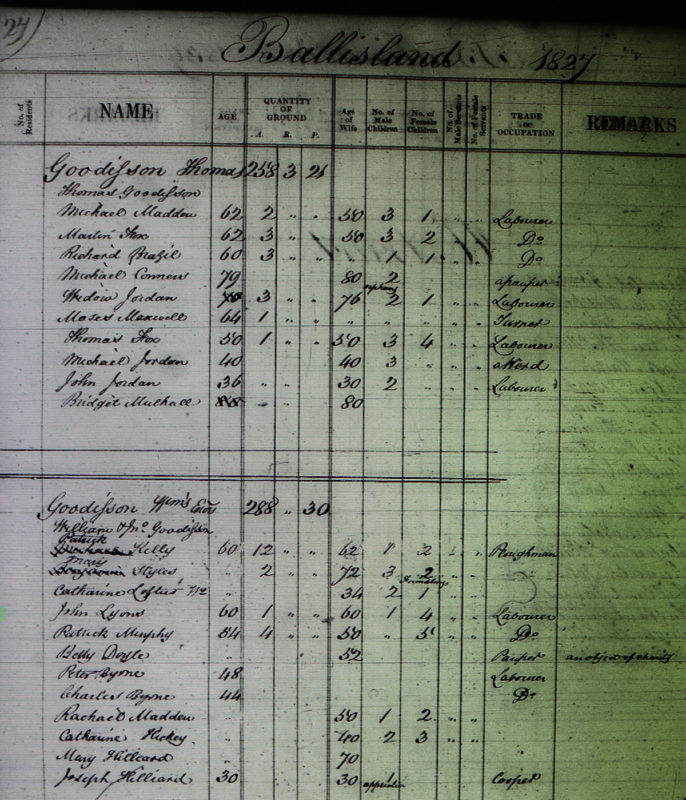 27
Ballisland 1827
No. of Residents NAME AGE QUANTITY OF GROUND A. R. P. Age of Wife No. of Male Children No. of Female Children No. of Male Servants No. of Female Servants TRADE or OCCUPATION REMARKS
Goodisson Thomas 258 3 21
Thomas Goodisson
Michael Madden 62 2 " " 50 3 1 " " Labourer
Martin Fox 62 3 " " 50 3 2 " " Do
Richard Brazil 60 3 " " " 1 1 " " Do
Michael Connors 79 80 2 a pauper
orphans
Widow Jordan 3 " " 76 2 1 " " Labourer
Moses Maxwell 64 1 " " " " " " " Turner
Thomas Fox 50 1 " " 50 3 4 " " Labourer
Michael Jordan 40 40 3 " " " a Herd
John Jordan 36 " " 30 2 " " " Labourer
Bridget Mulhall 80
Goodisson Wm's Exors 288 " 30
William & Jno Goodisson
Patrick
Kelly 60 12 " " 62 1 2 " " Ploughman
Mary
Styles " 2 " " 72 3 2 " "
Catharine Loftus 34 2 1 "
John Lyons 60 1 " " 60 1 4 " " Labourer
Patrick Murphy 54 4 " " 50 " 5 " " Do
Betty Doyle 52 Pauper an object of charity
Peter Byrne 48 Labourer
Charles Byrne 44 Do
Rachael Madden " 50 1 2 " "
Catharine Hickey " 40 2 3 " "
Mary Hilliard 70
Joseph Hilliard 30 30 1 Cooper
apprentice